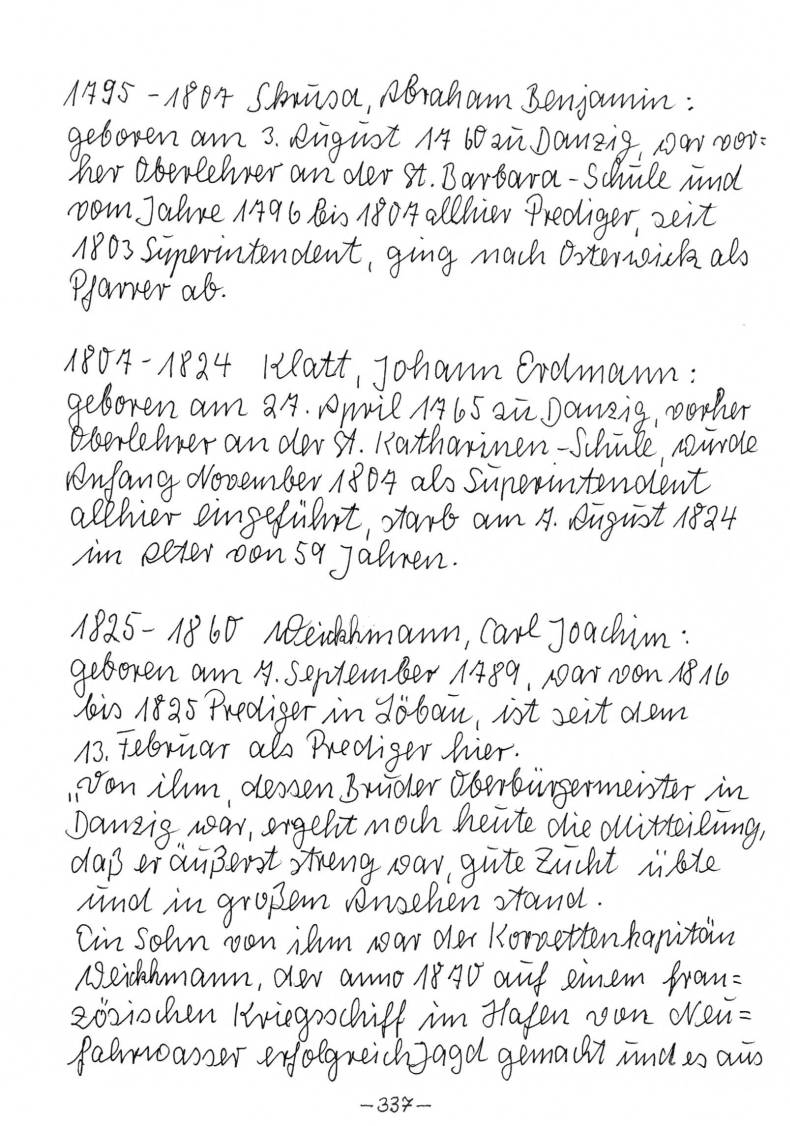 1795 - 1807 Skrusa, Abraham Benjamin :
geboren am 3. August 1760 zu Danzig, war vor=
her Oberlehrer an der St. Barbara - Schule und
vom Jahre 1796 bis 1807 allhier Prediger, seit
1803 Superintendent, ging nach Osterwick als
Pfarrer ab.
1807 - 1824 Klatt, Johann Erdmann :
geboren am 27. April 1765 zu Danzig, vorher
Oberlehrer an der St. Katharinen - Schule, wurde
Anfang November 1807 als Superintendent
allhier eingeführt, starb am 7. August 1824
im Alter von 59 Jahren.
1825 - 1860 Weickhmann, Carl Joachim :
geboren am 7. September 1789, war von 1816
bis 1825 Prediger in Löbau, ist seit dem
13. Februar als Prediger hier.
„Von ihm, dessen Bruder Oberbürgermeister in
Danzig war, ergeht noch heute die Mitteilung,
daß er äußerst streng war, gute Zucht übte
und in großem Ansehen stand.
Ein Sohn von ihm war der Korvettenkapitän
Weickhmann, der anno 1870 auf einem fran=
zösischen Kriegsschiff im Hafen von Neu=
fahrwasser erfolgreich Jagd gemacht und es aus
- 337 -